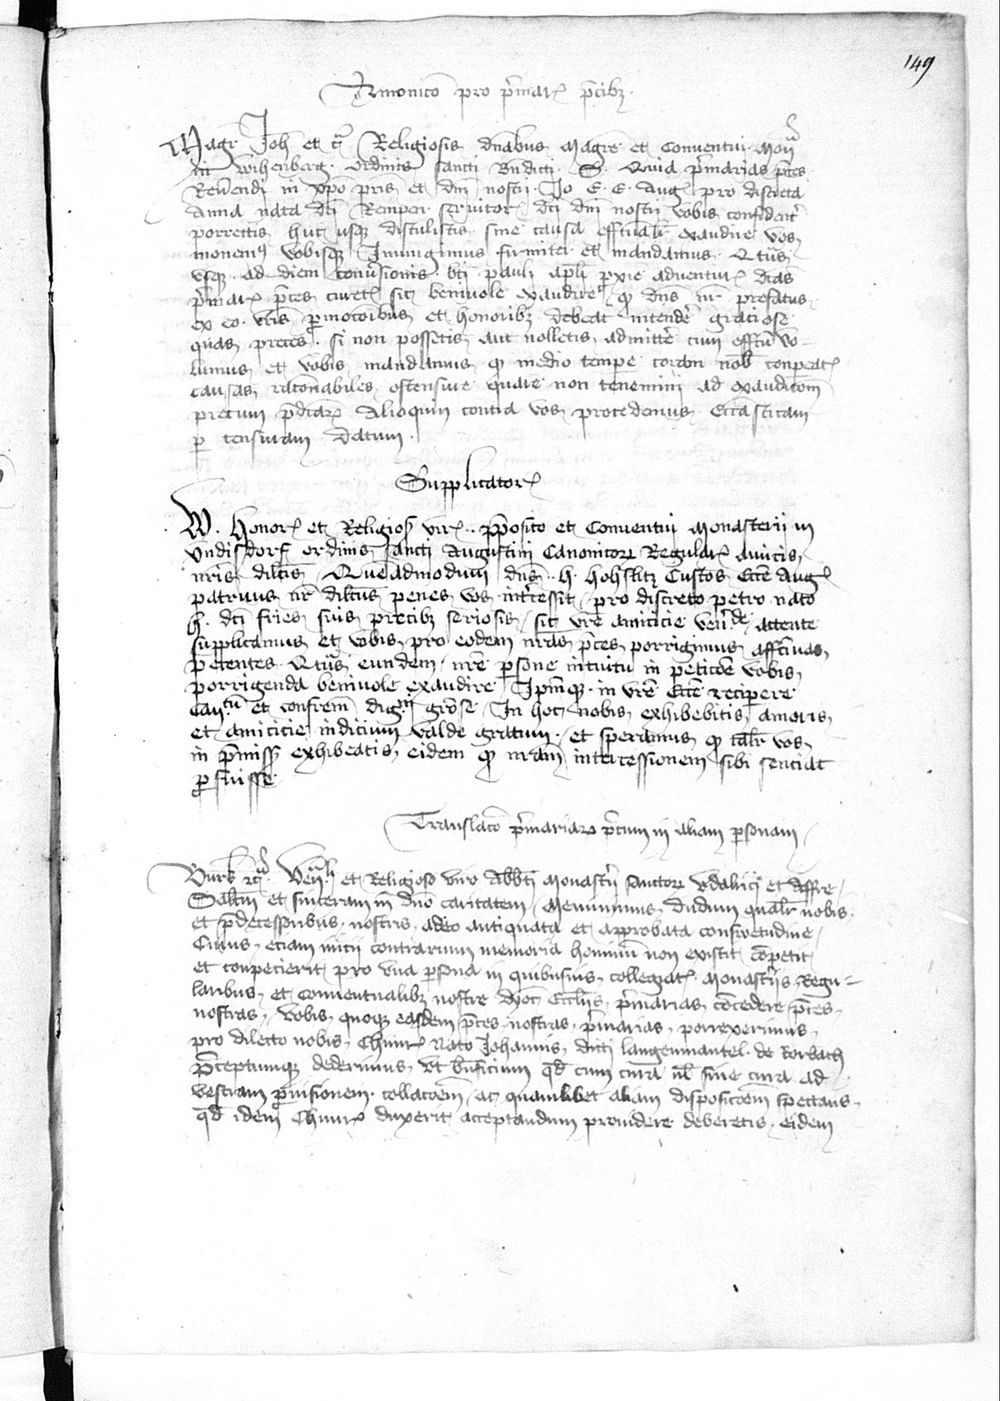 149
Amonico pro primar precibz
Magr Joh et c Religiosis dnabus Magre et Conventui Mon
in Wihenberg ordinis sancti Bndicti S Quia primarias pces
Reuendi in xpo pris et dni nostri Jo E E Aug pro discreta
Anna nata dci Kemper seruitor dci dni nostri vobis confident
porrectis huc usqz distulistis sine causa effectualr exaudire vos
monem vobisqz Iniungimus firmiter et mandamus Qtus
vsqz ad diem conuersionis bti pauli apli pxie aduentur dcas
primar pces curetis sic beniuole exaudire qz dns nr prefatus
ex eo vris pmotoribus et honoribz debeat intendere graciose
quas preces si non possetis aut nolletis admitte cum effectu vo-
lumus et vobis mandamus qz medio tempe coram nob conpareat
causas racionabiles ostensure quare non tenemini ad exauditom
precum pdcarz Alioquin contra vos procedemus Eccasticam
p censuram Datum
Supplicator
W. Honor et Religios vir pposito et Conventui Monasterii in
Vndisdorf ordinis sancti Augustini Canonicorz Regular amicis
nris dilctis Quemadmodum dns H hohslitz Custos Ecce Aug
patruus nr dilctus penes vos intercessit pro discreto petro nato
H dci fries suis precibz seriosis sic vre amicicie attente
supplicamus et vobis pro eodem nras pces porrigimus affcuas
petentes Qtus eundem nre psone intuitu in peticoe vobis
porrigenda beniuole exaudire Ipmqz in vre Ecce recipere
Can et confrem dig grose In hoc nobis exhibebitis amoris
et amicicie indicium valde gratum et speramus qz talr vos
in pmiss exhibeatis eidem qz nram intercessionem sibi senciat
pfuisse
Translaco primariarz pcum in aliam psonam
Burk Ven et Religioso viro Abbti Monastri sanctorz vdalrici et Affre
Saltm et sinceram in dno caritatem Meminimus dudum qualr nobis
et pdecessoribus nostris adeo antiquata et approbata consuetudine
Cuius eciam inicii contrarium memoria hominu non existit competit
et conpecierit pro vna psona in quibusuis collegiat Monastriis Regu-
laribus et Conventualibz nostre dyoc Eccliis primarias concedere pces
nostras vobis quoqz easdem pces nostras primarias porrexerimus
pro dilecto nobis Chunr nato Johannis dicti langenmantel de Rorbach
Pceptumqz dederimus vt bnficium qd cum cura ul sine cura ad
vestram pruisionem collacoem ac quamlibet aliam disposicoem spectans
qd idem Chunr duxerit acceptandum prouidere deberetis eidem